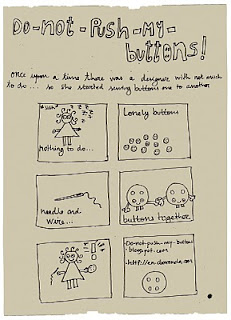 Do-not-Push-my-
buttons!
Once upon a time there was a designer with not much
to do... so she started sewing buttons one to another
nothing to do...
Lonely buttons
needle and
wire...
buttons together
Do-not-push-my-buttons
.blogspot.com